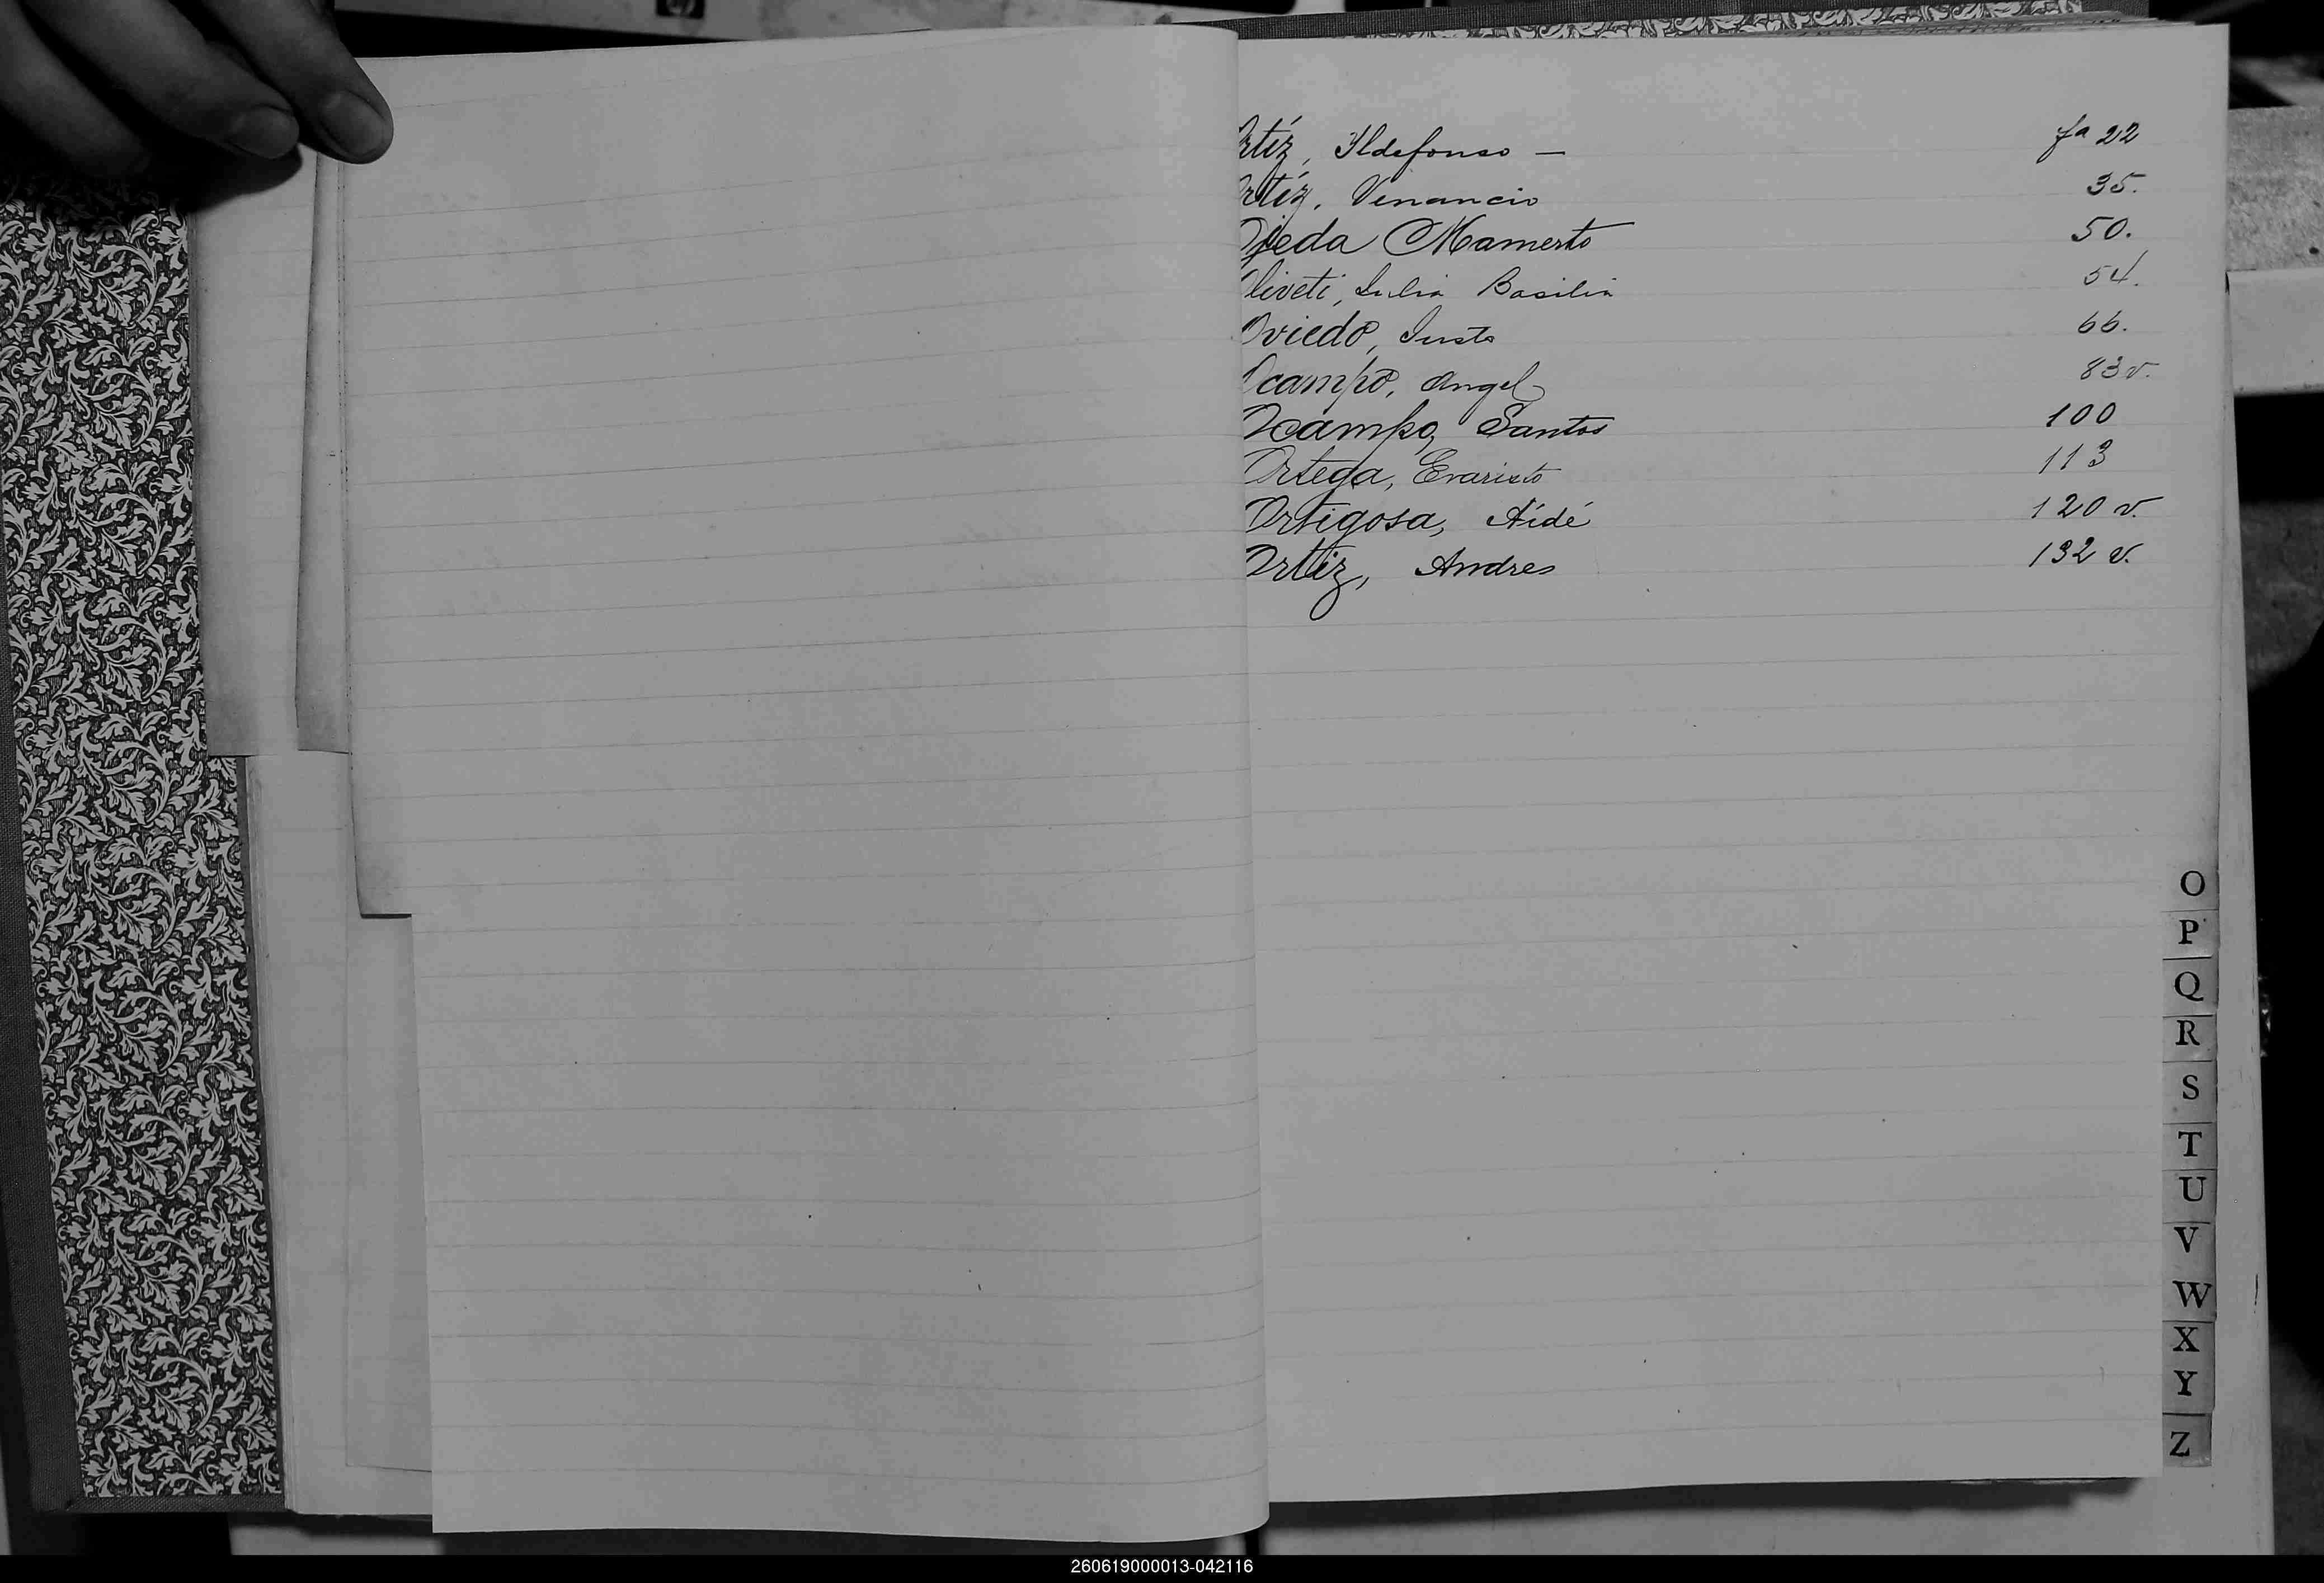 Ortíz, Ildefonso — fª 22
Ortíz, Venancio 35.
Ojeda Mamerto 50.
Oliveti, Julia Basilia 54.
Oviedo, Justo 66.
Ocampo, Angel 83v.
Ocampo, Santos 100
Ortega, Evaristo 113
Ortigosa, Aídé 120 v.
Ortiz, Andres 132 v.
O
P
Q
R
S
T
U
V
W
X
Y
Z
260619000013-042116